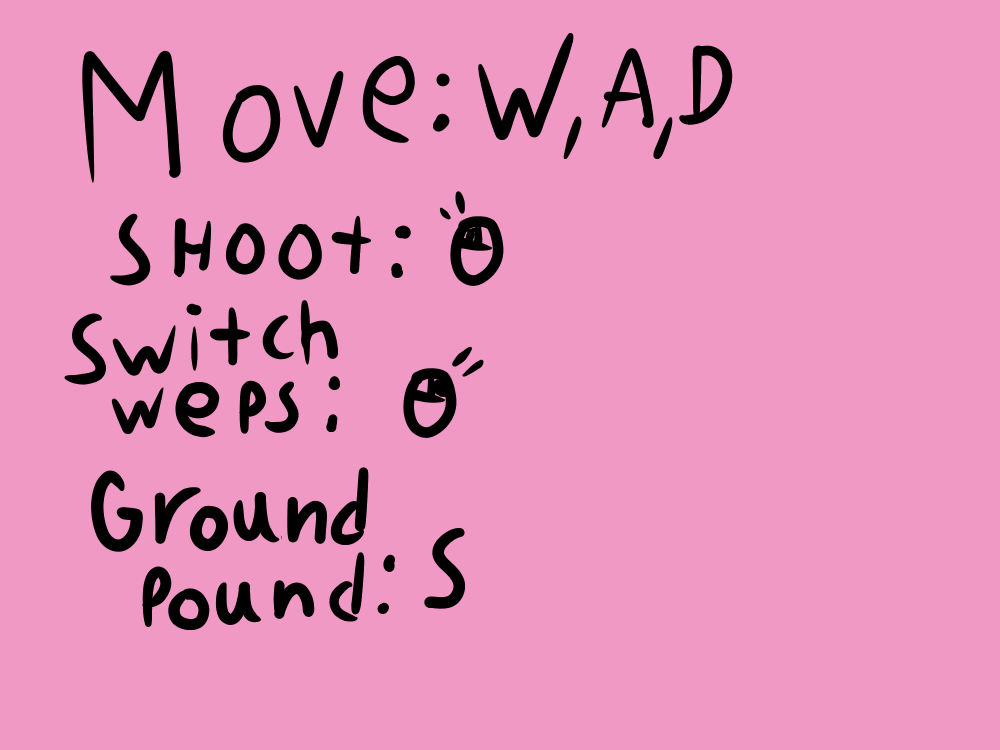 Move: W, A, D
SHOOt:
Switch
weps:
Ground
Pound: S